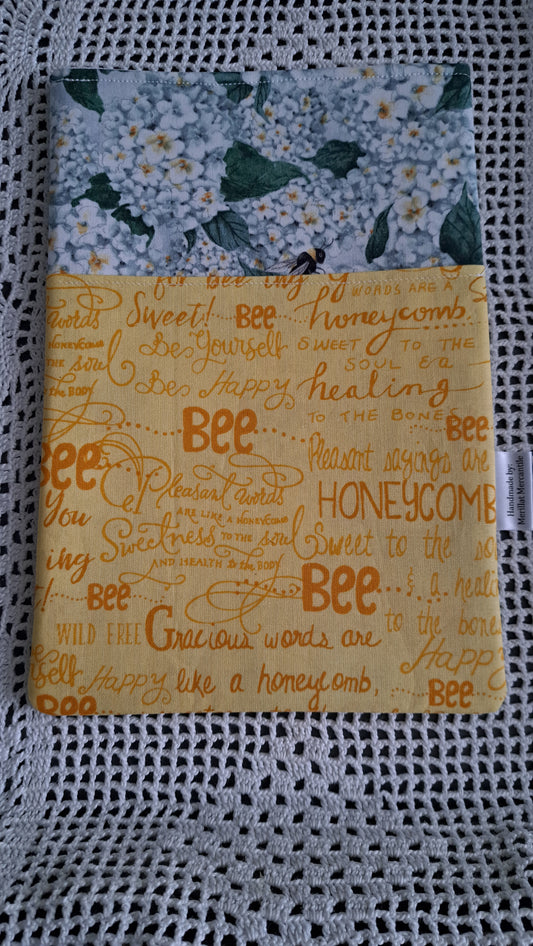 for Bee ing by
WORDS ARE A
Sweet! BEE honeycomb.
words Be Yourself SWEET TO THE
HONEYCOMB SOUL & a
THE soul Be Happy healing
to the BODY TO THE BONES
BEE BEE
Pleasant sayings are
BEE Pleasant words HONEYCOMB
You ARE LIKE A HONEYCOMB
Sweetness TO THE soul Sweet to the so
ing AND HEALTH to the BODY
! BEE BEE & a healin
WILD FREE Gracious words are to the bones
self Happy like a honeycomb, Happy
BEE
Handmade by:
Merillat Mercantile